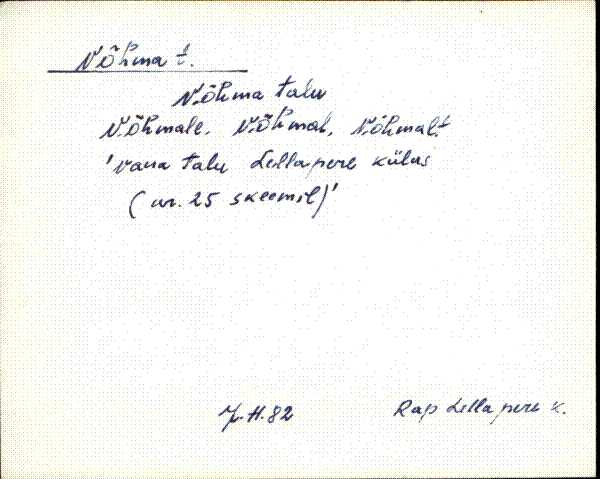 Nõhma t.
Nõhma talu
Nõhmale, Nõhmal, Nõhmalt
'vana talu Lellapere külas
(nr. 25 skeemil)'
J.H.82
Rap Lellapere k.